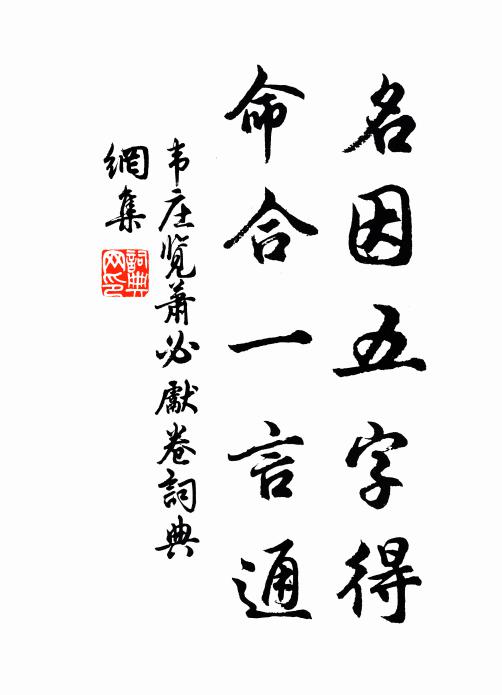 名因五字得
命合一言通
韦庄览萧必献卷詞典
網集
詞典
网印